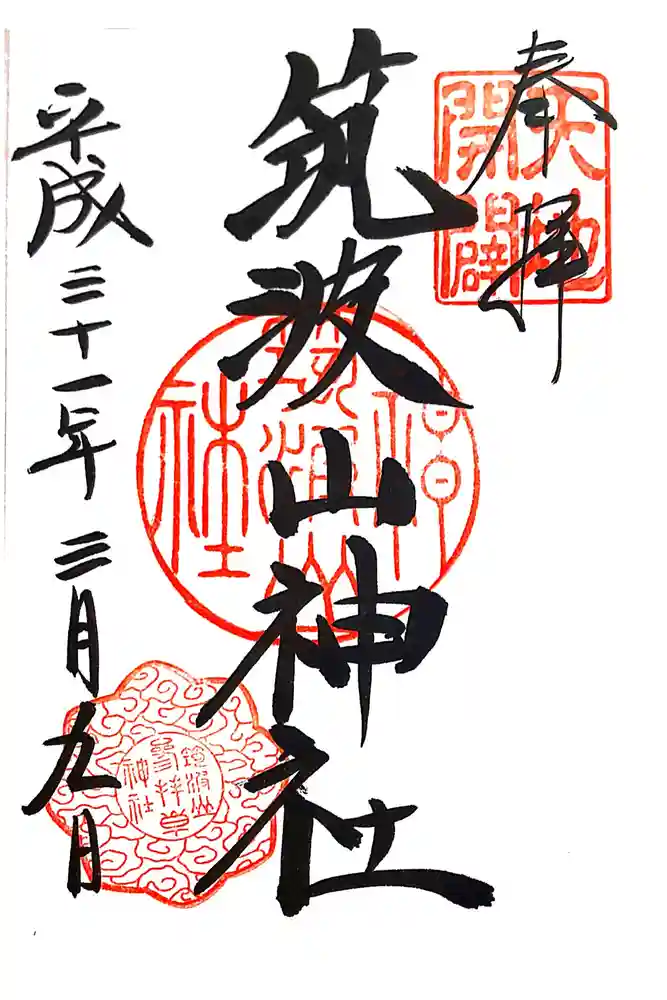 奉拝
天地
開闢
筑波山神社
筑波山
神社
平成三十一年三月九日
筑波山
神社